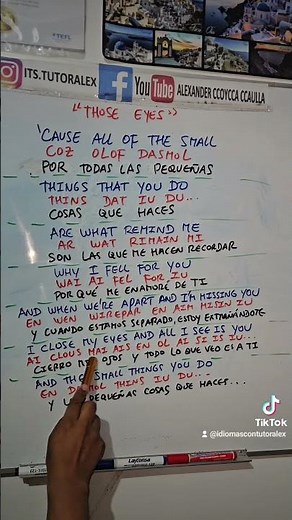 ITS.TUTORALEX
YouTube
ALEXANDER CCOYCCA CCAULLA
"THOSE EYES"
'CAUSE ALL OF THE SMALL
COZ OLOF DASMOL
POR TODAS LAS PEQUEÑAS
THINGS THAT YOU DO
THINS DAT IU DU...
COSAS QUE HACES
ARE WHAT REMIND ME
AR WAT RIMAIN MI
SON LAS QUE ME HACEN RECORDAR
WHY I FELL FOR YOU
WAI AI FEL FOR IU
POR QUÉ ME ENAMORÉ DE TI
AND WHEN WE'RE APART AND I'M MISSING YOU
EN WEN WIREPAR EN AIM MISIN IU
Y CUANDO ESTAMOS SEPARADO, ESTOY EXTRAÑÁNDOTE
I CLOSE MY EYES AND ALL I SEE IS YOU
AI CLOUS MAI AIS EN OL AI SI IS IU...
CIERRO MIS OJOS Y TODO LO QUE VEO ES A TI
AND THE SMALL THINGS YOU DO
EN DESMOL THINS IU DU...
Y PEQUEÑAS COSAS QUE HACES...
TikTok
@idiomascontutoralex
Layfonsa